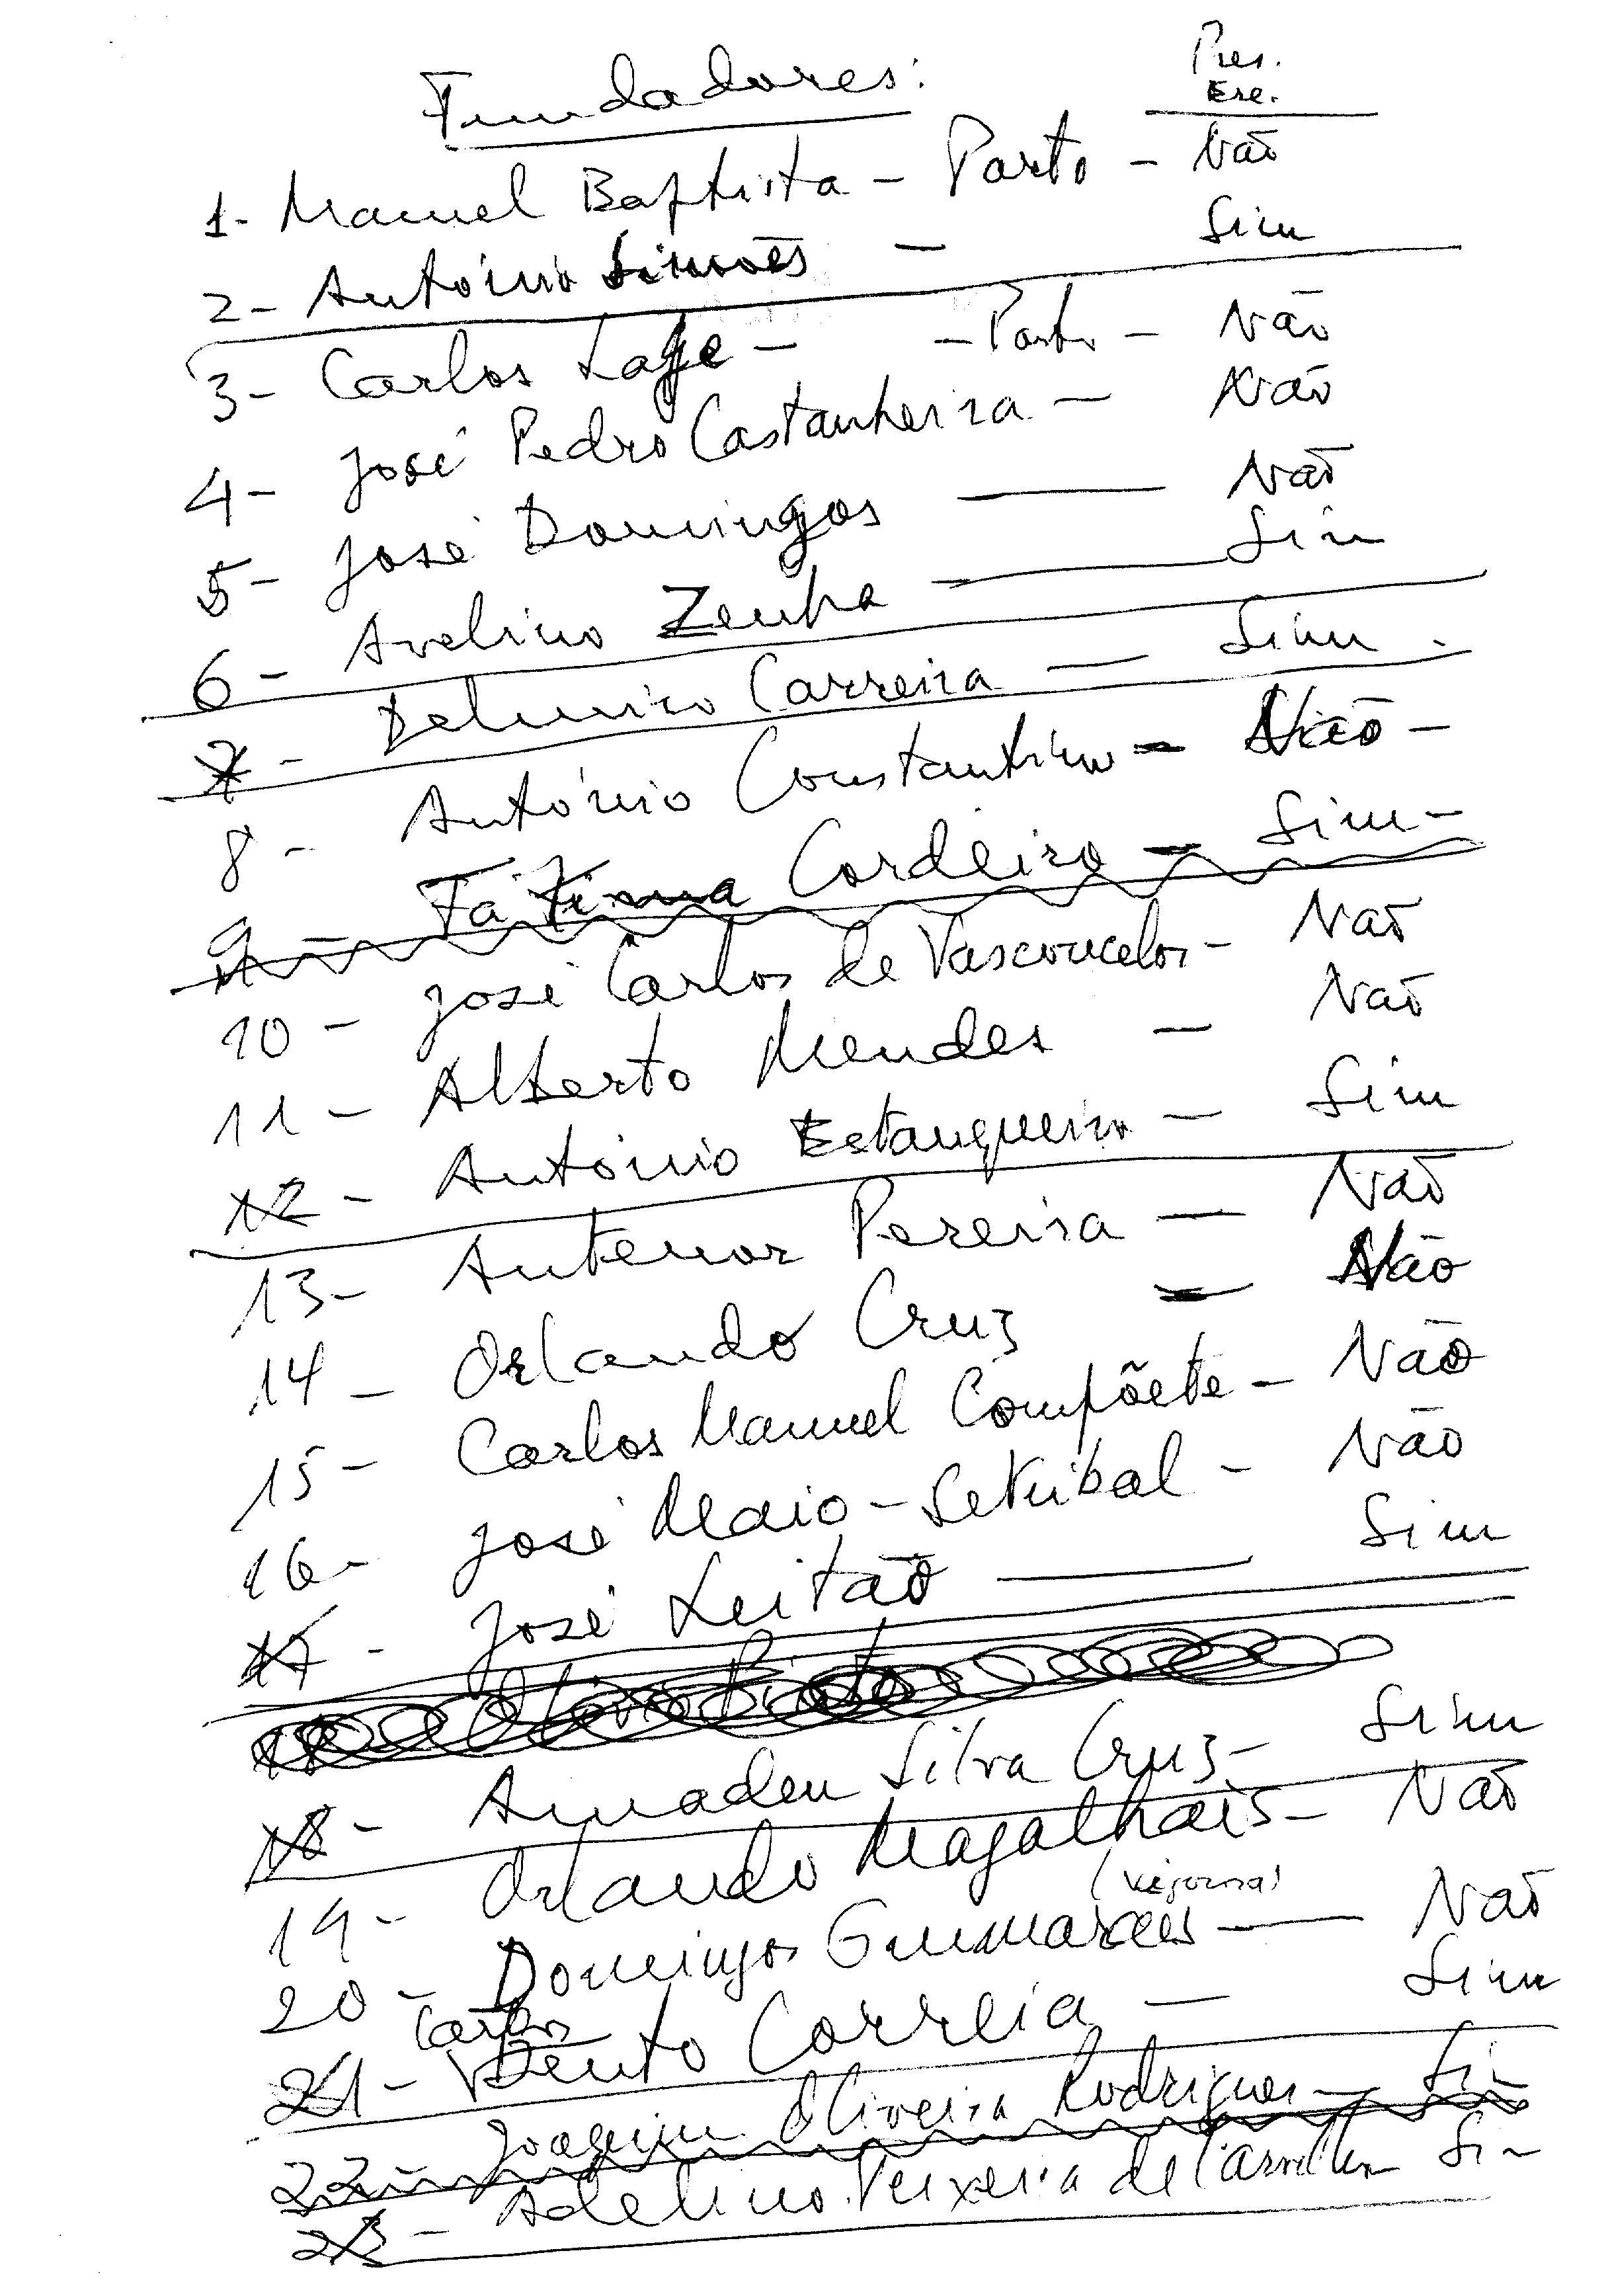 Fundadores:
Pres.
Esc.
1- Manuel Baptista - Porto - Não
2- António Simões - Sim
3- Carlos Lage - - Porto - Não
4- José Pedro Castanheira - Não
5- José Domingos — Não
6- Avelino Zenha — Sim
7- Delmiro Carreira — Sim.
8- António Constantino - Não -
9- Fátima Cordeiro - Sim -
10- José Carlos de Vasconcelos - Não
11- Alberto Mendes - Não
12- António Estanqueiro - Sim
13- Antenor Pereira — Não
14- Orlando Cruz — Não
15- Carlos Manuel Compõete - Não
16- José Maio - Setúbal - Não
17- José Leitão — Sim
18- Amadeu Silva Cruz - Sim
19- Orlando Magalhais - Não
20- Domingos Guimarães — Não
Carlos
21- Bento Correia — Sim
22- Joaquim Oliveira Rodrigues - Si-
23- Adelino Teixeira de Carvalho Si-